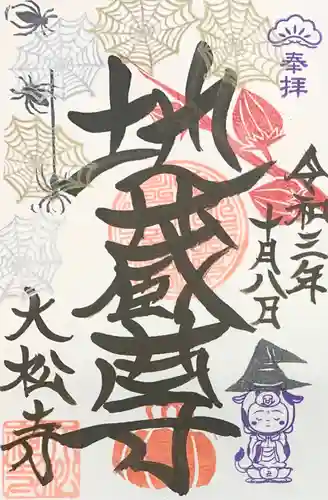 奉拝
令和三年
十月八日
地蔵尊
大松寺